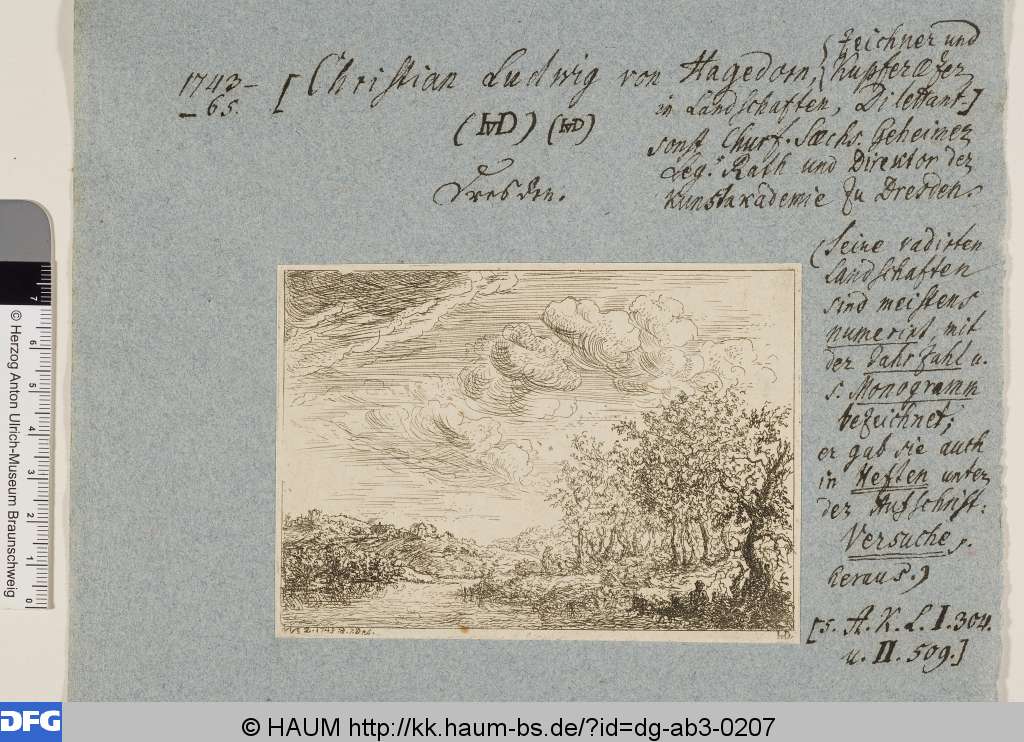 1743–
– 65.
[Christian Ludwig von Hagedorn, (Zeichner und
Kupferäzer
in Landschaften, Dilettant-]
sonst Churf. Sæchs. Geheimer
Leg.s Rath und Direktor der
Kunstakademie zu Dresden.
(HD) (HD)
Dresden.
(Seine radirten
Landschaften
sind meistens
numerirt, mit
der Jahrzahl u.
s. Monogramm
bezeichnet;
er gab sie auch
in Heften unter
der Aufschrift:
Versuche,
heraus.)
[s. A. K. L. I. 304.
u. II. 509.]
1743
HD.
© Herzog Anton Ulrich-Museum Braunschweig
7
6
5
4
3
2
1
0
DFG
© HAUM http://kk.haum-bs.de/?id=dg-ab3-0207